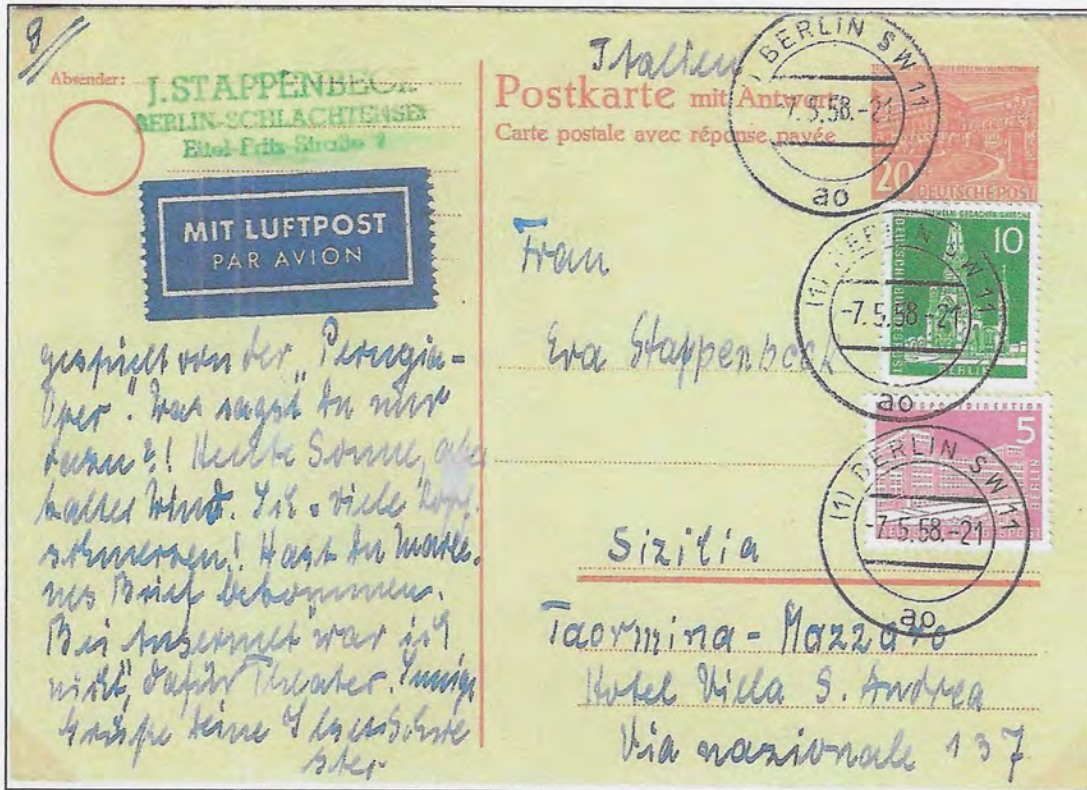 8
Absender:
J. STAPPENBECK
BERLIN-SCHLACHTENSEE
Eitel-Fritz-Straße
MIT LUFTPOST
PAR AVION
gespielt von der „Perugia-
Oper". Was sagst du nur
dazu?! Heute Sonne, aber
kalter Wind. Ich viele Kopf-
schmerzen! Hast du Marle-
nes Brief bekommen.
Bei Ansermet war ich
nicht, dafür Theater. Innige
Grüße deine Schwe
ster
Italien
Postkarte mit Antwort
Carte postale avec réponse payée
20
DEUTSCHE POST
(1) BERLIN SW 11
-7.5.58.-21
ao
10
BERLIN
(1) BERLIN SW 11
-7.5.58-21
ao
5
BERLIN
(1) BERLIN SW 11
-7.5.58.-21
ao
Frau
Eva Stappenbeck
Sizilia
Taormina - Mazzaro
Hotel Villa S. Andrea
Via nazionale 137